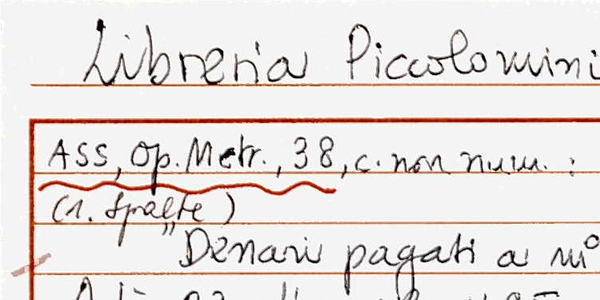 Libreria Piccolomini
ASS, Op. Metr., 38, c. non num. :
(1. Spalte)
"Denari pagati a mº